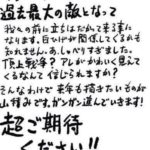 過去最大の敵となって
我々の前に立ちはだかって来る事に
なります。白ひげが関係してくるかも
知れません。あ、しゃべりすぎました。
頂上戦争？アレがかわいく見えて
くるなんて信じられますか？
そんなわけで来年も描きたいものが
山積みです。ガンガン進んでいきます！
超ご期待
ください!!